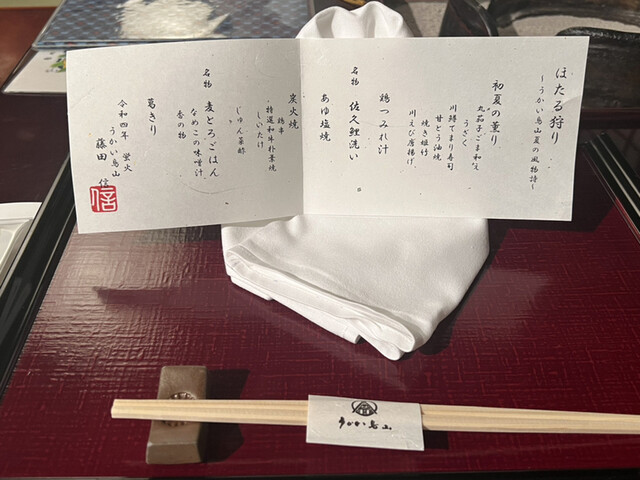 ほたる狩り
～うかい鳥山夏の風物詩～
初夏の薫り
丸茄子ごま和え
うざく
川鱒てまり寿司
甘とう油焼
焼き姫竹
川えび唐揚げ
鶏つみれ汁
名物 佐久鯉洗い
あゆ塩焼
炭火焼
鶏串
しいたけ
特選和牛朴葉焼
じゅん菜酢
名物 麦とろごはん
なめこの味噌汁
香の物
葛きり
令和四年 蛍火
うかい鳥山
藤田 信
信
うかい鳥山